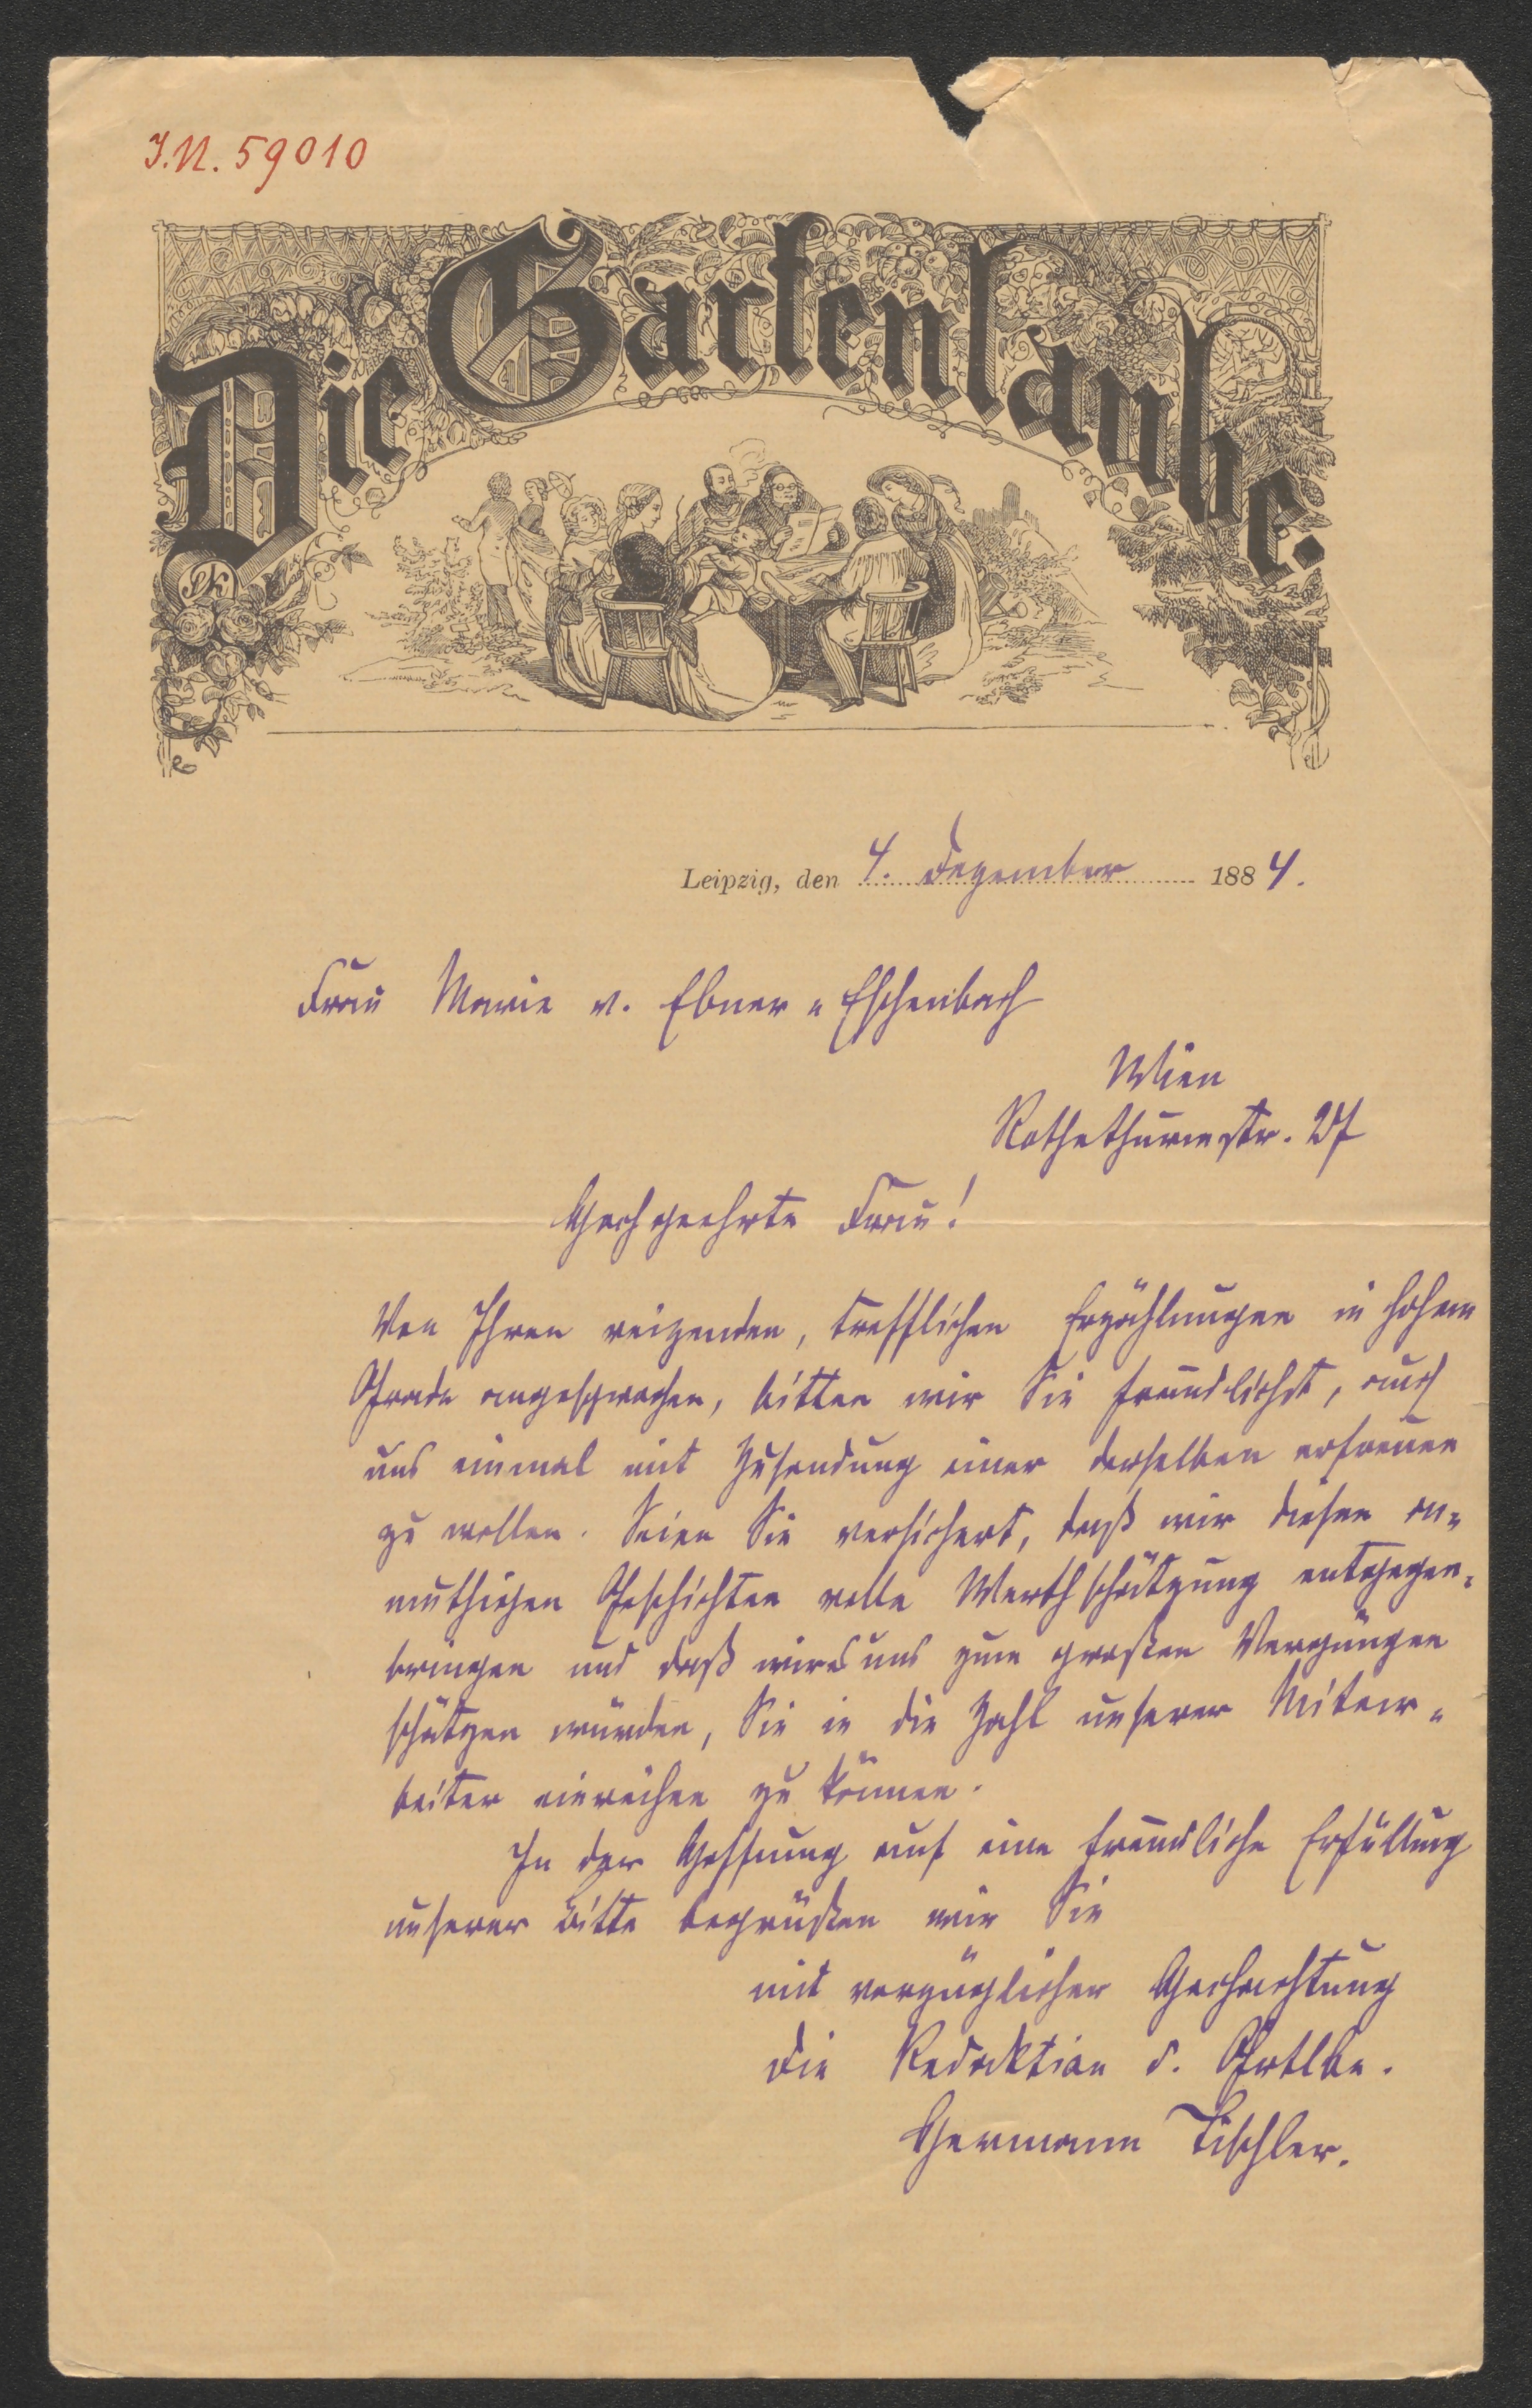 I.N. 59010
Die Gartenlaube.
Leipzig, den 4. Dezember 1884.
Frau Marie v. Ebner-Eschenbach
Wien
Rothethurmstr. 27
Hochgeehrte Frau!
Von Ihren reizenden, trefflichen Erzählungen in hohem
Grade angesprochen, bitten wir Sie freundlichst, auch
uns einmal mit Zusendung einer derselben erfreuen
zu wollen. Seien Sie versichert, daß wir diesen an-
muthigen Geschichten volle Werthschätzung entgegen-
bringen und daß wir es uns zum großen Vergnügen
schätzen würden, Sie in die Zahl unserer Mitar-
beiter einreihen zu können.
In der Hoffnung auf eine freundliche Erfüllung
unserer Bitte begrüßen wir Sie
mit vorzüglicher Hochachtung
Die Redaktion d. Grtlbe.
Hermann Tischler.